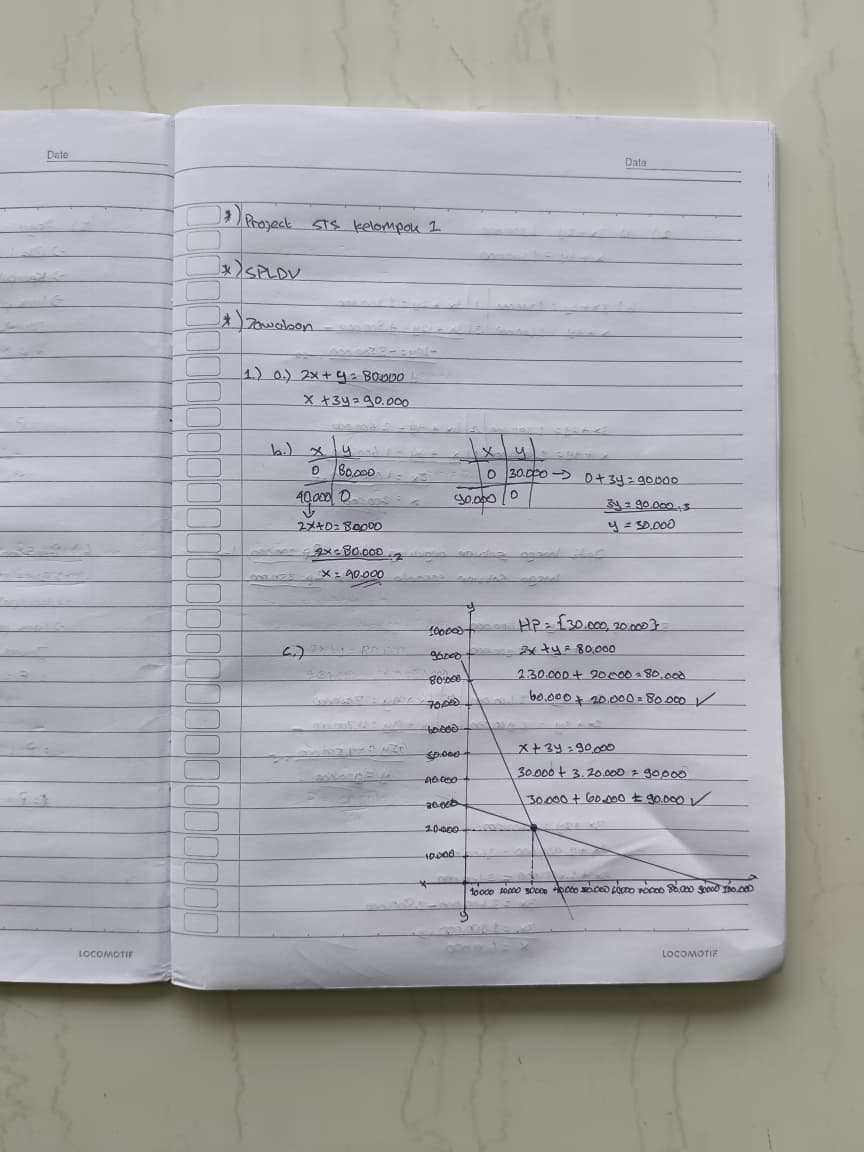 Date
Date
*) Project STS Kelompok 1
*) SPLDV
*) Jawaban
1.) a.) 2x + y = 80.000
x + 3y = 90.000
b.) x | y
0 | 80.000
40.000 | 0
2x+0 = 80.000
2x = 80.000 : 2
x = 40.000
x | y
0 | 30.000 → 0 + 3y = 90.000
90.000 | 0
3y = 90.000 : 3
y = 30.000
c.)
y
100.000
90.000
80.000
70.000
60.000
50.000
40.000
30.000
20.000
10.000
x
10.000 20.000 30.000 40.000 50.000 60.000 70.000 80.000 90.000 100.000
y
HP = {30.000, 20.000}
2x + y = 80.000
2.30.000 + 20.000 = 80.000
60.000 + 20.000 = 80.000 ✓
x + 3y = 90.000
30.000 + 3.20.000 = 90.000
30.000 + 60.000 = 90.000 ✓
LOCOMOTIF
LOCOMOTIF